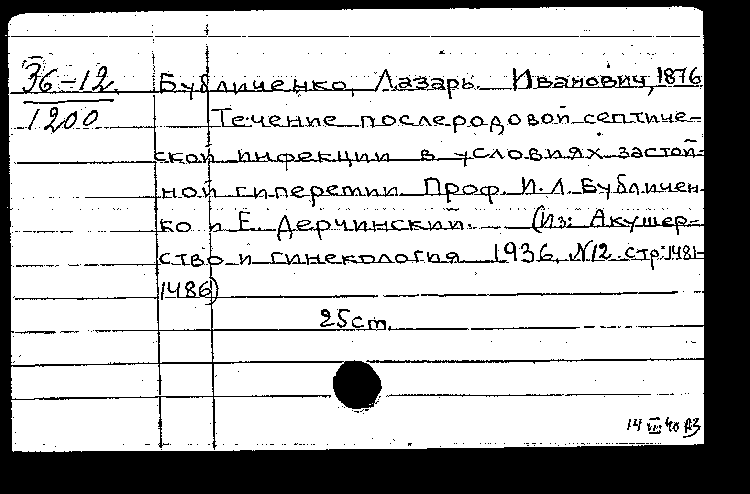 36-12. Бубличенко, Лазарь Иванович, 1876
1200 Течение послеродовой септиче-
ской инфекции в условиях застой-
ной гиперемии. Проф. И. Л. Бубличен-
ко и Е. Дерчинский. (Из: Акушер-
ство и гинекология 1936, N12. стр: 1481-
1486)
25 cm.
14 VIII 40